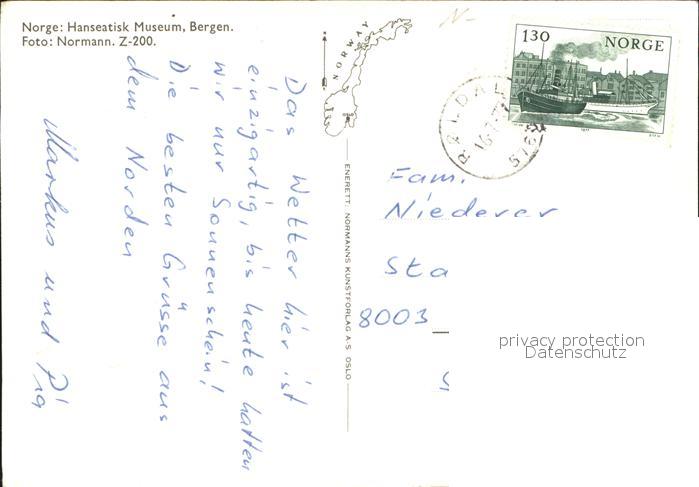 Norge: Hanseatisk Museum, Bergen.
Foto: Normann. Z-200.
Das Wetter hier ist
einzigartig, bis heute hatten
wir nur Sonnenschein!
Die besten Grüsse aus
dem Norden
Markus und Pia
NORWAY
OSLO
ENERETT: NORMANNS KUNSTFORLAG A-S OSLO
130 NORGE
RØLDAL
Fam.
Niederer
Sta
8003
privacy protection
Datenschutz